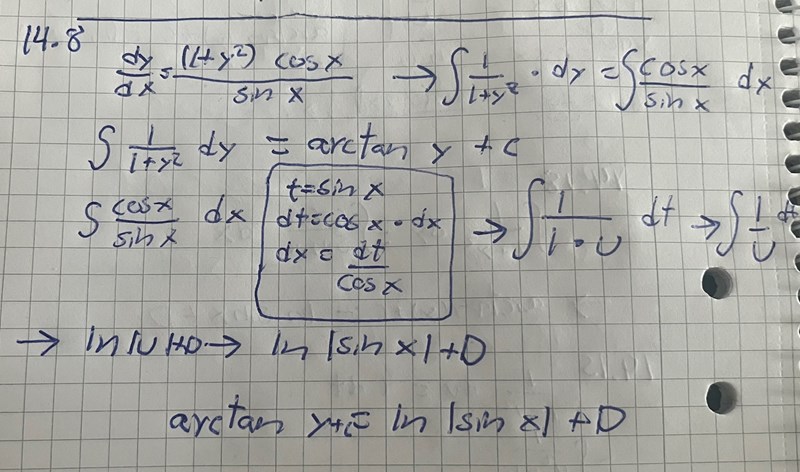 14.8
dy/dx = (1+y²) cosx / sin x → ∫ 1/1+y² · dy = ∫ cosx / sin x dx
∫ 1/1+y² dy = arctan y + c
∫ cosx / sin x dx
t = sin x
dt = cos x · dx
dx = dt / cos x
→ ∫ 1 / 1·U dt → ∫ 1/U dt
→ ln |U|+D → ln |sin x| + D
arctan y+c = ln |sin x| + D